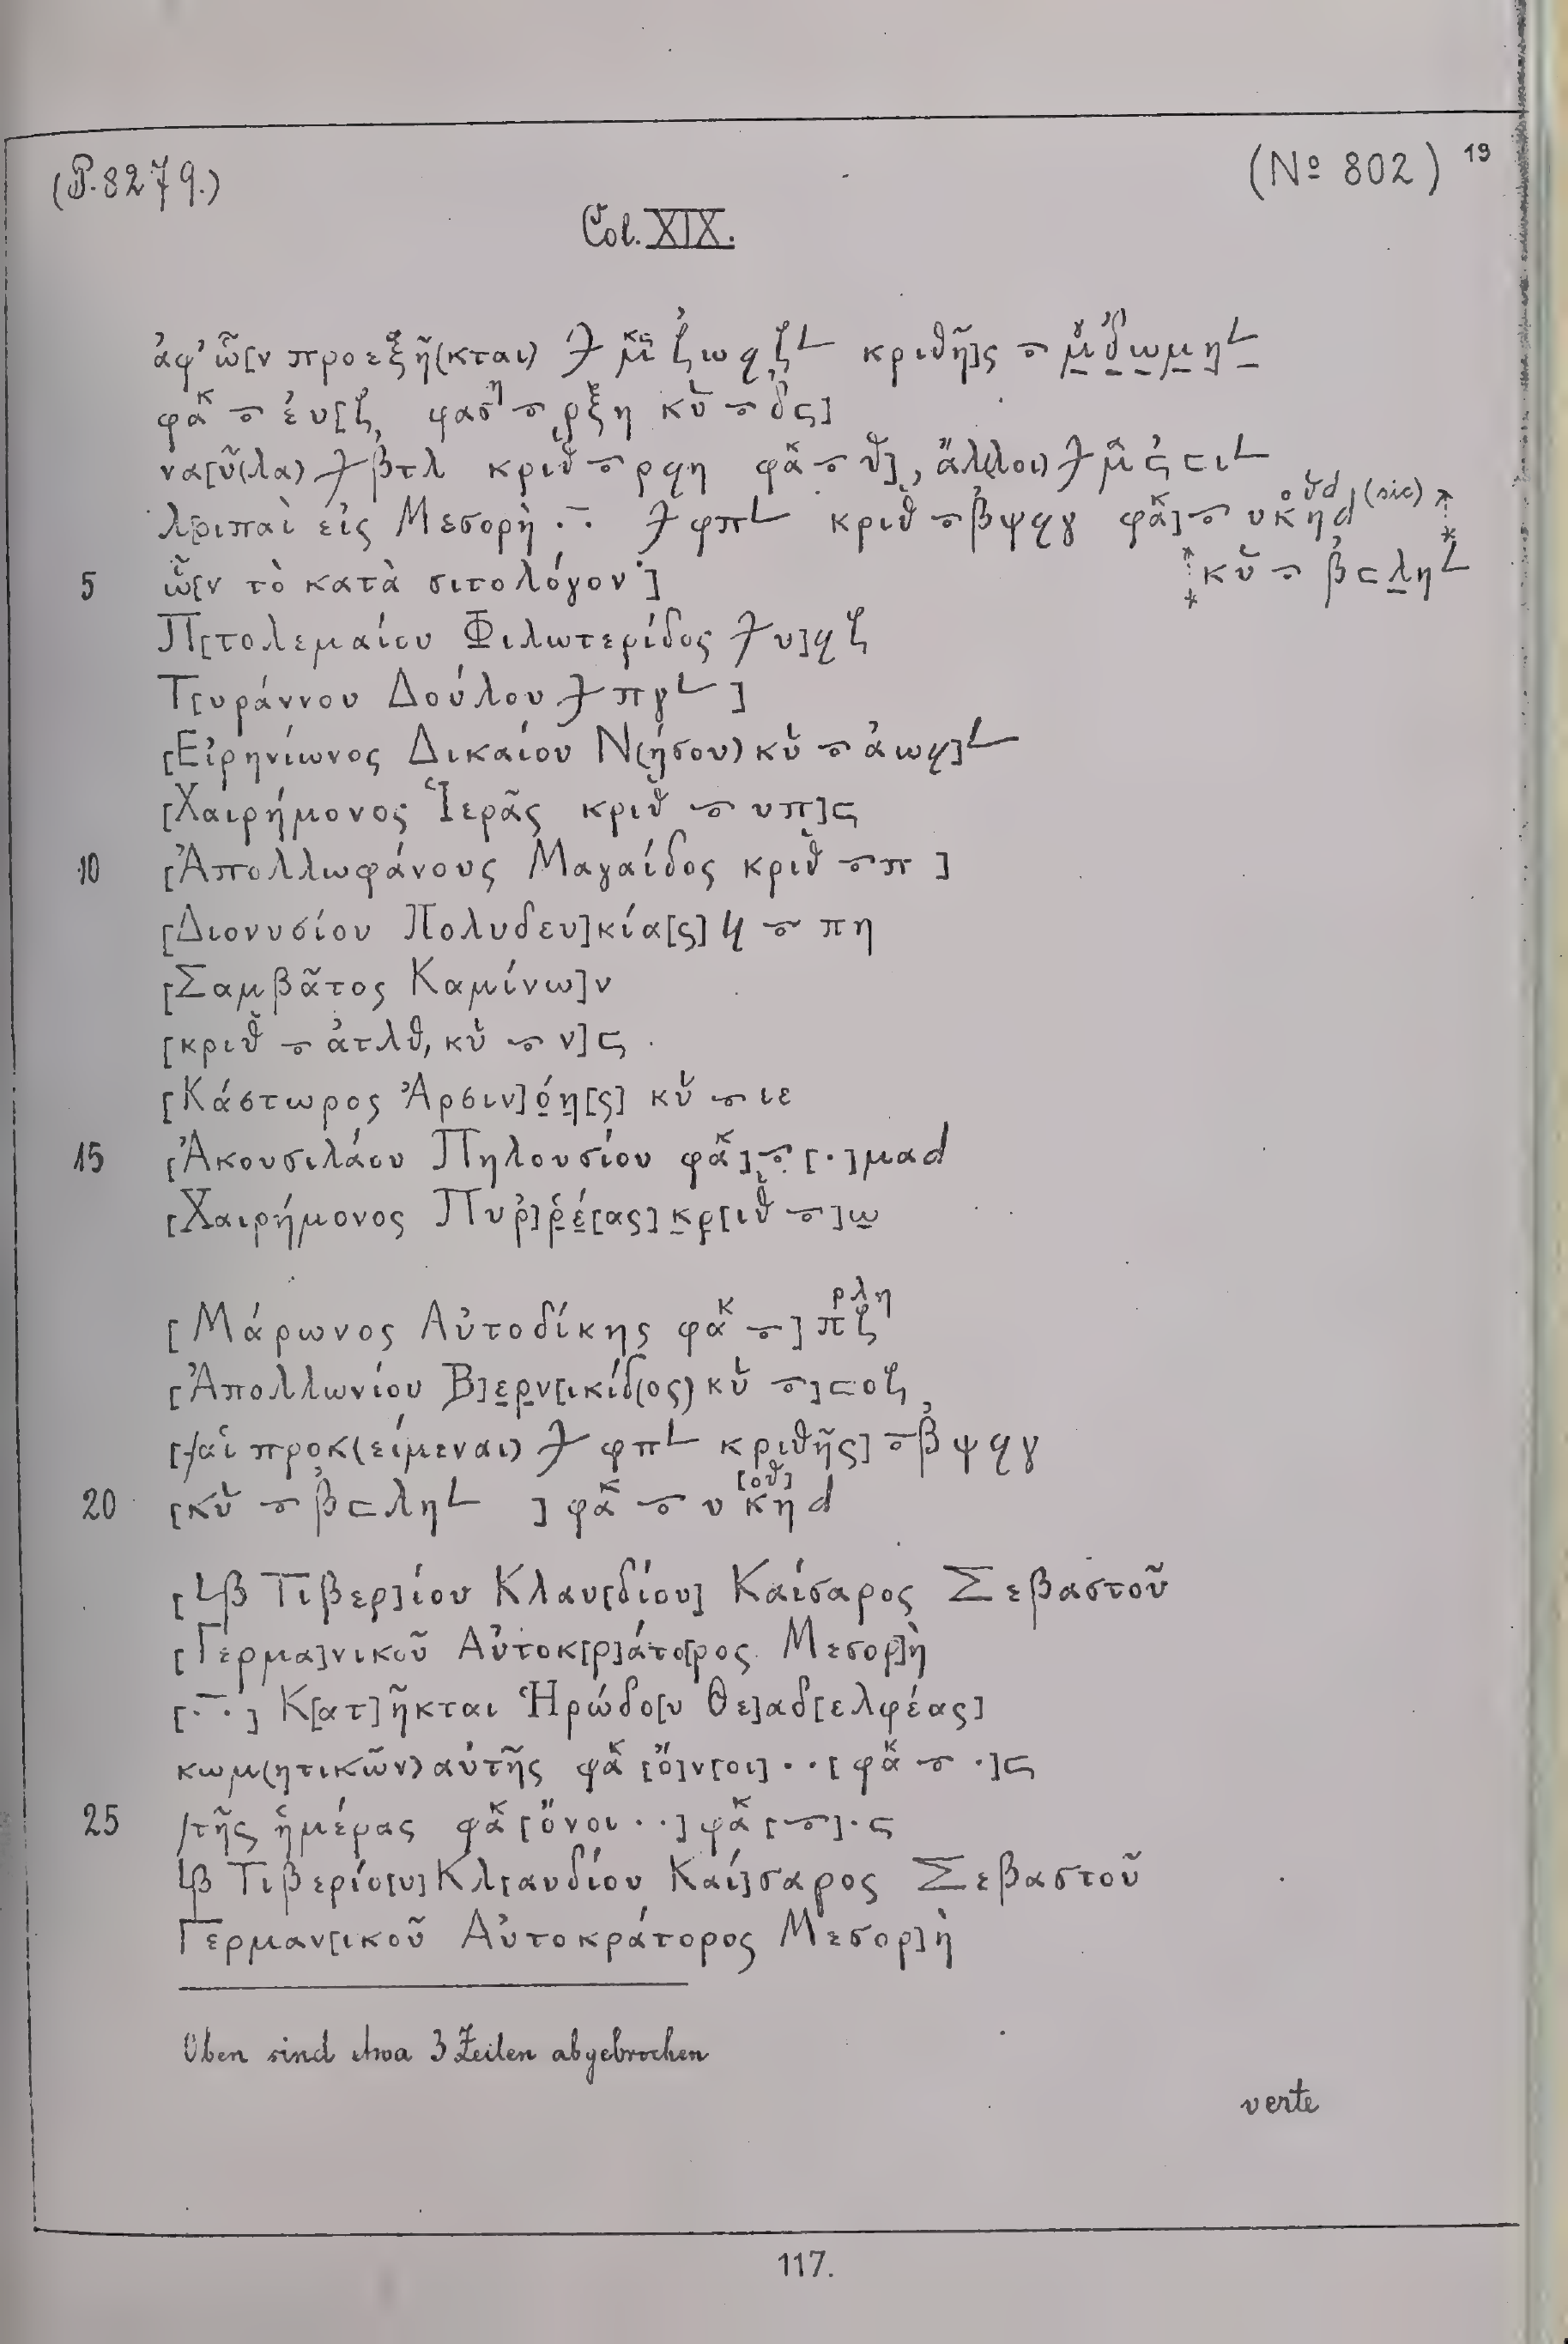 (P. 8279.)
(Nº 802) 19
Col. XIX.
ἀφ' ὧ[ν προεξῆ(κται) μ̅ ζωϙζ∟ κριθῆ]ς μ̅ δ̣ω̣μ̣η̣∟
φακ εʹυ[ζ, φαση ρξη κυ δϛ]
να[ῦ(λα) βτλ κριθ ρϙη φακ θ], ἄλ(λοι) μ̅ ϛ ⊂ι∟
λ[οιπαὶ εἰς Μεσορὴ ·–· φπ∟ κριθ βψϙγ φακ] υκηd (sic)
κυ β⊂λ̣η∟
5 ὧ[ν τὸ κατὰ σιτολόγον·]
Π[τολεμαίου Φιλωτερίδος υ]ϙζ
Τ[υράννου Δούλου πγ∟ ]
[Εἰρηνίωνος Δικαίου Ν(ήσου) κυ αωϙ]∟
[Χαιρήμονος Ἱερᾶς κριθ υπ]ϛ
10 [Ἀπολλωφάνους Μαγαίδος κριθ π ]
[Διονυσίου Πολυδευ]κία[ς] πη
[Σαμβᾶτος Καμίνω]ν
[κριθ ατλθ, κυ ν]ϛ
[Κάστωρος Ἀρσιν]ό̣η̣[ς] κυ ιε
15 [Ἀκουσιλάου Πηλουσίου φακ] [·]μαd
[Χαιρήμονος Πυῤ]ῥ̣έ̣[ας] κ̣ρ̣[ιθ ]ω̣
ρλη
[Μάρωνος Αὐτοδίκης φακ ] πζ
[Ἀπολλωνίου Β]ε̣ρ̣ν[ικίδ(ος) κυ ]⊂οζ
[/αἱ προκ(είμεναι) φπ∟ κριθῆς] βψϙγ
[οθ]
20 [κυ β⊂λη∟ ] φακ υκηd
[∟β Τιβερ]ίου Κλαυ[δίου] Καίσαρος Σεβαστοῦ
[Γερμα]νικοῦ Αὐτοκ[ρ]άτο[ρος Μεσορ]ὴ
[·–·] Κ[ατ]ῆκται Ἡρώδο[υ Θε]αδ[ελφέας]
κωμ(ητικῶν) αὐτῆς φακ [ὄ]ν[οι] ··[ φακ ·]ϛ
25 /τῆς ἡμέρας φακ [ὄνοι ··] φακ [ ]·ϛ
∟β Τιβερίο[υ] Κλ[αυδίου Καί]σαρος Σεβαστοῦ
Γερμαν[ικοῦ Αὐτοκράτορος Μεσορ]ὴ
Oben sind etwa 3 Zeilen abgebrochen
verte
117.